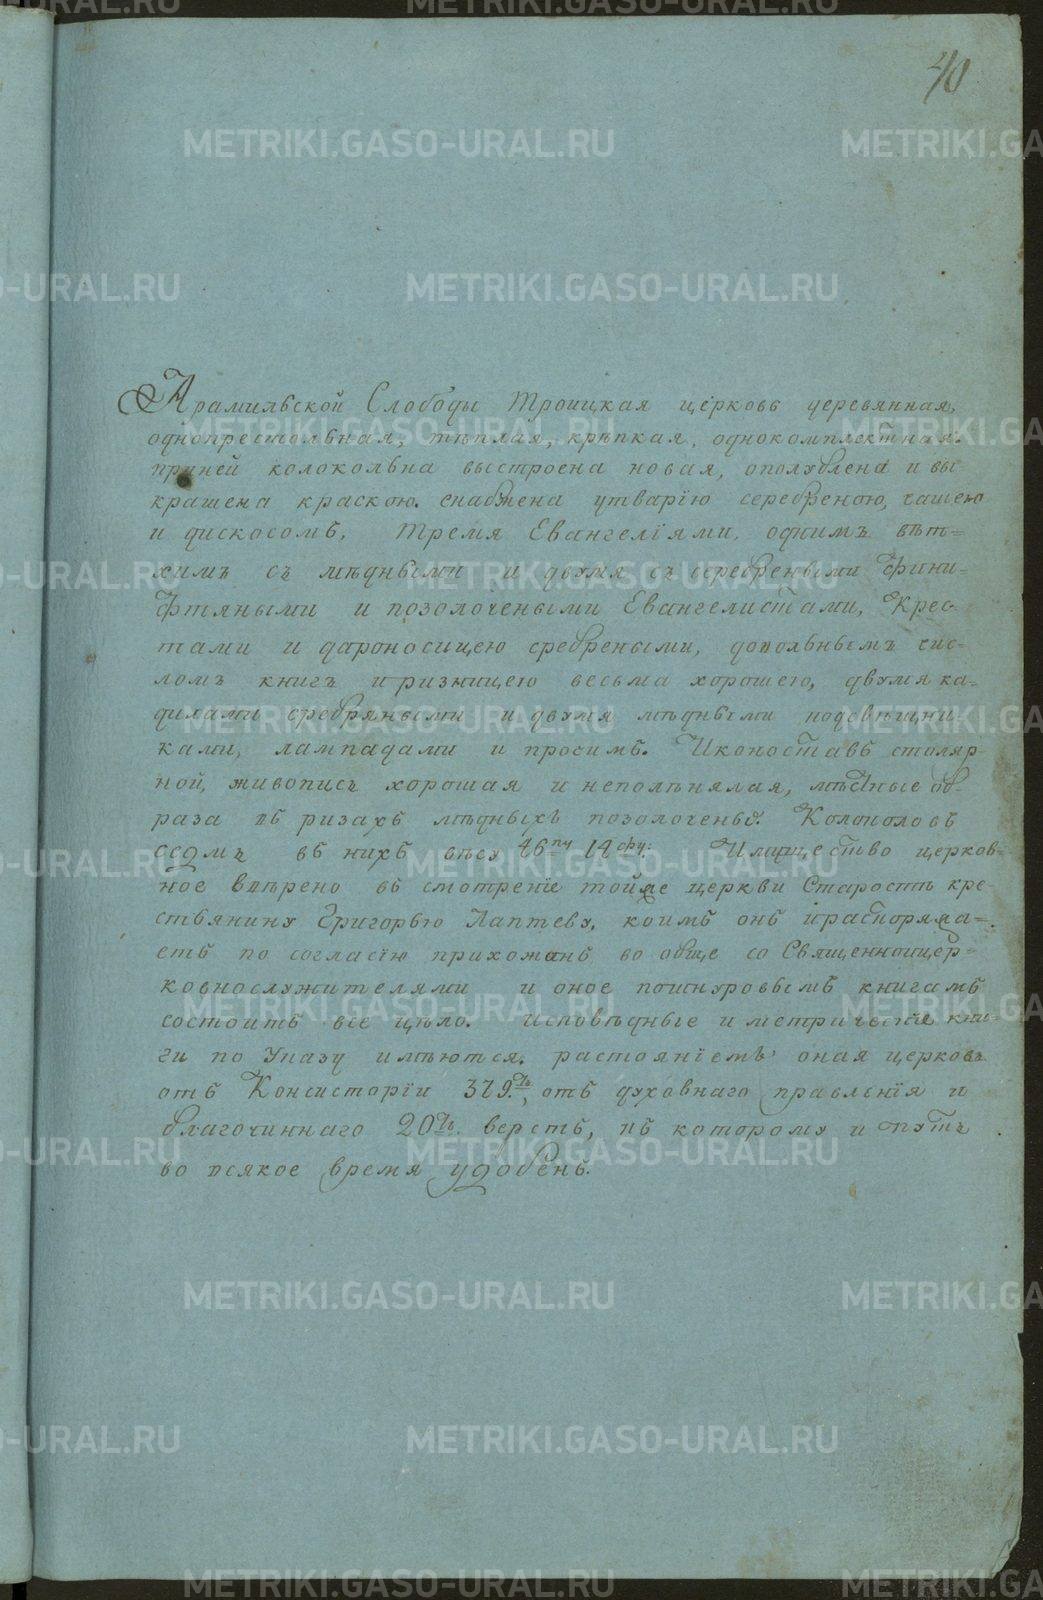 40
Арамильской Слободы Троицкая церковь деревянная,
однопрестольная, тѣплая, крѣпкая, однокомплектная.
приней колокольна выстроена новая, ополублена и вы
крашена краскою. снабжена утварїю серебреною, чашею
и дискосомъ, тремя Евангелїями, однимъ вѣт-
химъ съ мѣдными и двумя съ серебреными Фини-
фтяными и позолочеными Евангелистами, Крес-
тами и дароносицею сребреными, довольнымъ чис-
ломъ книгъ и ризницею весьма хорошею, двумя ка-
дилами сребряными и двумя мѣдными подсвѣшни-
ками, лампадами и просимъ. Иконоставъ столяр-
ной, живопись хорошая и неполѣнялая, мѣстные об-
раза въ ризахъ мѣдныхъ позолочены. Колоколовъ
седмъ въ нихъ вѣсу 46 пу 14 фу: Имущество церков-
ное ввѣрено въ смотренїе тойже церкви Старостѣ кре-
стьянину Григорью Лаптеву, коимъ онъ и распоряжа-
етъ по согласїю прихожанъ во обще со Священноцер-
ковнослужителями и оное пошнуровымъ книгамъ
состоитъ все цѣло. Исповѣдные и метрическїе кни-
ги по Указу имѣются. растоянїемъ оная церковь
отъ Консисторїи 379.ть, отъ духовнаго правленїя и
благочиннаго 20ть верстъ, къ которому и путь
во всякое время удобенъ.
METRIKI.GASO-URAL.RU